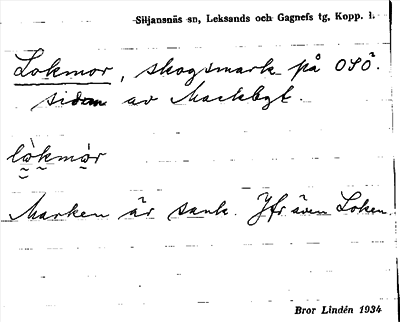 Siljansnäs sn, Leksands och Gagnefs tg, Kopp. l.
Lokmor, skogsmark på OSÖ.
sidan av Mackbgt.
lòkmo̤r
Marken är sank. Jfr även Loken.
Bror Lindén 1934